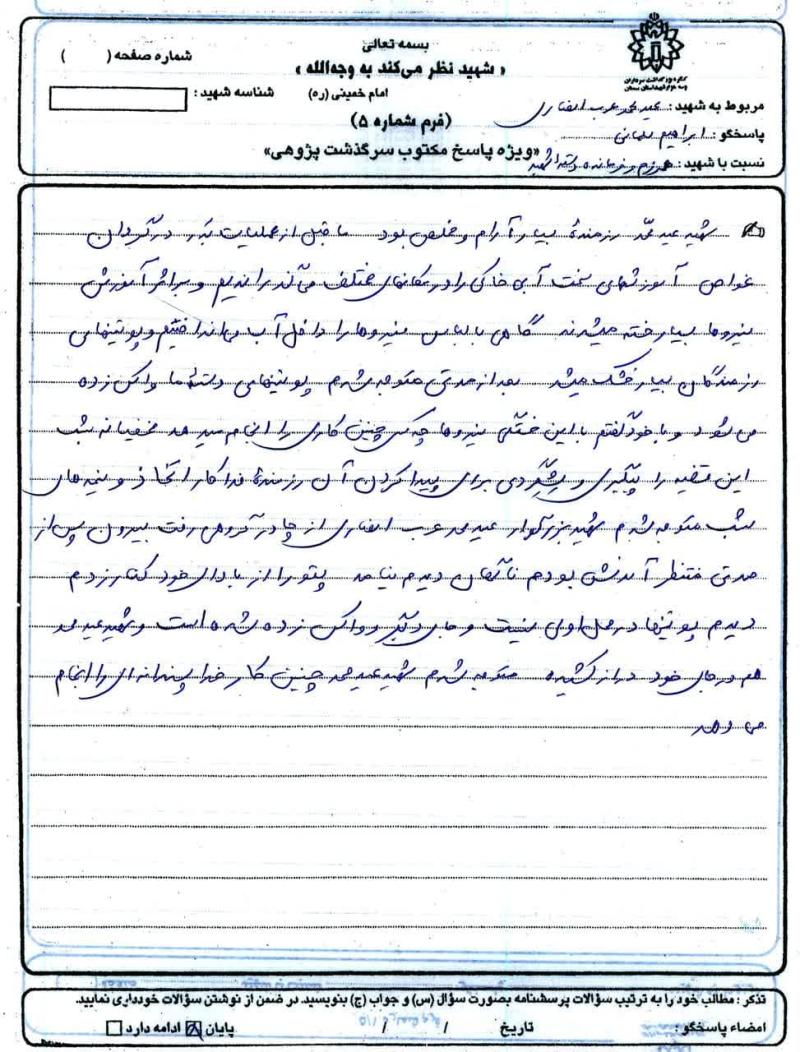 بسمه تعالی
« شهید نظر می‌کند به وجه‌الله »
امام خمینی (ره)
شماره صفحه ( )
شناسه شهید :
(فرم شماره ۵)
«ویژه پاسخ مکتوب سرگذشت پژوهی»
کنگره بزرگداشت سرداران
و سه هزار شهید استان سمنان
مربوط به شهید : عید محمد عرب انصاری
پاسخگو : ابراهیم
نسبت با شهید : همرزم و فرمانده دسته شهید
شهید عید محمد رزمندهٔ بسیار آرام و مخلص بود ما قبل از عملیات بدر در گردان
غواص آموزشهای سخت آبی خاکی را در مکانهای مختلف می‌گذراندیم و بر اثر آموزش
نیروها بسیار خسته میشدند گاهی با لباس نیروها را داخل آب می‌انداختیم و پوتینهای
رزمندگان بسیار خشک میشد بعد از مدتی متوجه شدم پوتینهای دستهٔ ما واکس زده
می‌شود و با خود گفتم با این خستگی نیروها چه کسی چنین کاری را انجام میدهد مخفیانه شب
این قضیه را پیگیری و برای پیدا کردن آن رزمندهٔ فداکار اتخاذ و نیمه‌های
شب متوجه شدم شهید بزرگوار عید محمد عرب انصاری از چادر گروهی رفت بیرون پس از
مدتی منتظر آمدنش بودم ناگهان دیدم نیامد پتو را از بالای خود کنار زدم
دیدم پوتینها در محل اولی نیست و جای دیگر و واکس زده شده است و شهید عید محمد
هم در جای خود دراز کشیده متوجه شدم شهید عید محمد چنین کار خدا پسندانه‌ای را انجام
می‌دهد
تذکر : مطالب خود را به ترتیب سؤالات پرسشنامه بصورت سؤال (س) و جواب (ج) بنویسید. در ضمن از نوشتن سؤالات خودداری نمایید.
امضاء پاسخگو : تاریخ / / پایان ☒ ادامه دارد ☐